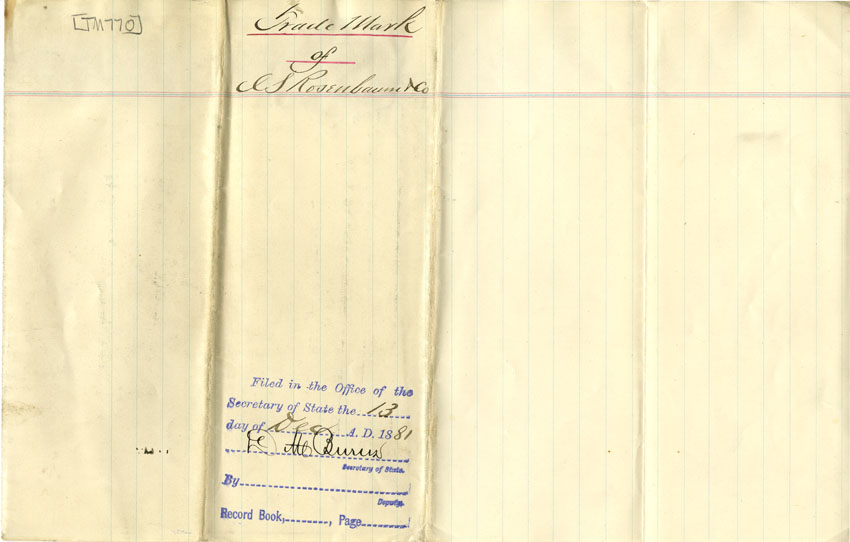 [TM770]
Trade Mark
of
C S Rosenbaum & Co
Filed in the Office of the
Secretary of State the 13
day of Dec A. D. 1881
D M Burns
Secretary of State.
By
Deputy.
Record Book, , Page